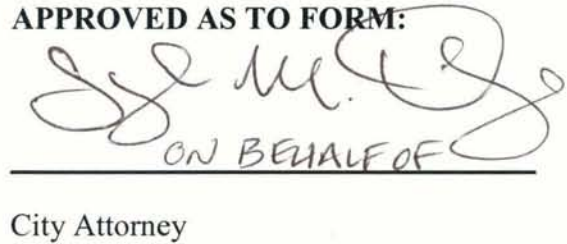 APPROVED AS TO FORM:
M.
ON BEHALF OF
City Attorney